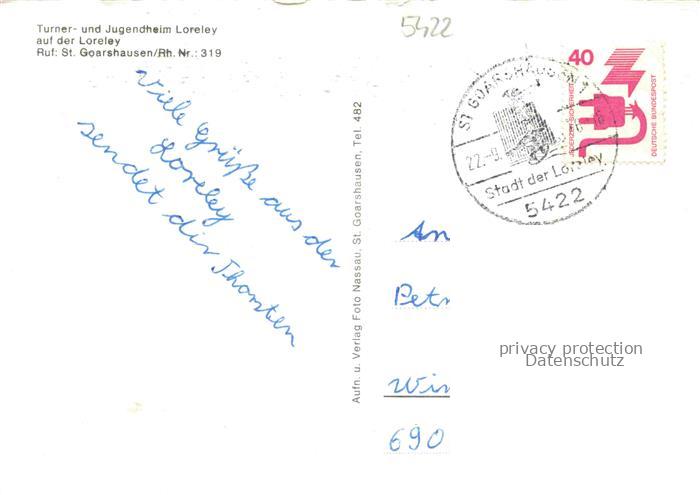 Turner- und Jugendheim Loreley
auf der Loreley
Ruf: St. Goarshausen/Rh. Nr.: 319
5422
Viele Grüße aus der
Loreley
sendet dir Thorsten
Aufn. u. Verlag Foto Nassau, St. Goarshausen, Tel. 482
ST GOARSHAUSEN 1
22.-9.
Stadt der Loreley
5422
40
JEDERZEIT SICHERHEIT
DEUTSCHE BUNDESPOST
An
Petr
Wir
690
privacy protection
Datenschutz